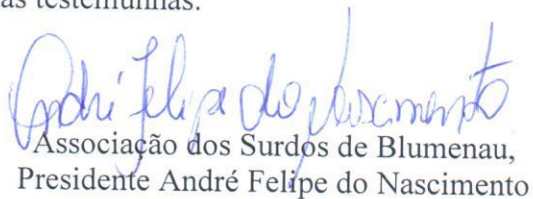 as testemunhas.
André Felipe do Nascimento
Associação dos Surdos de Blumenau,
Presidente André Felipe do Nascimento